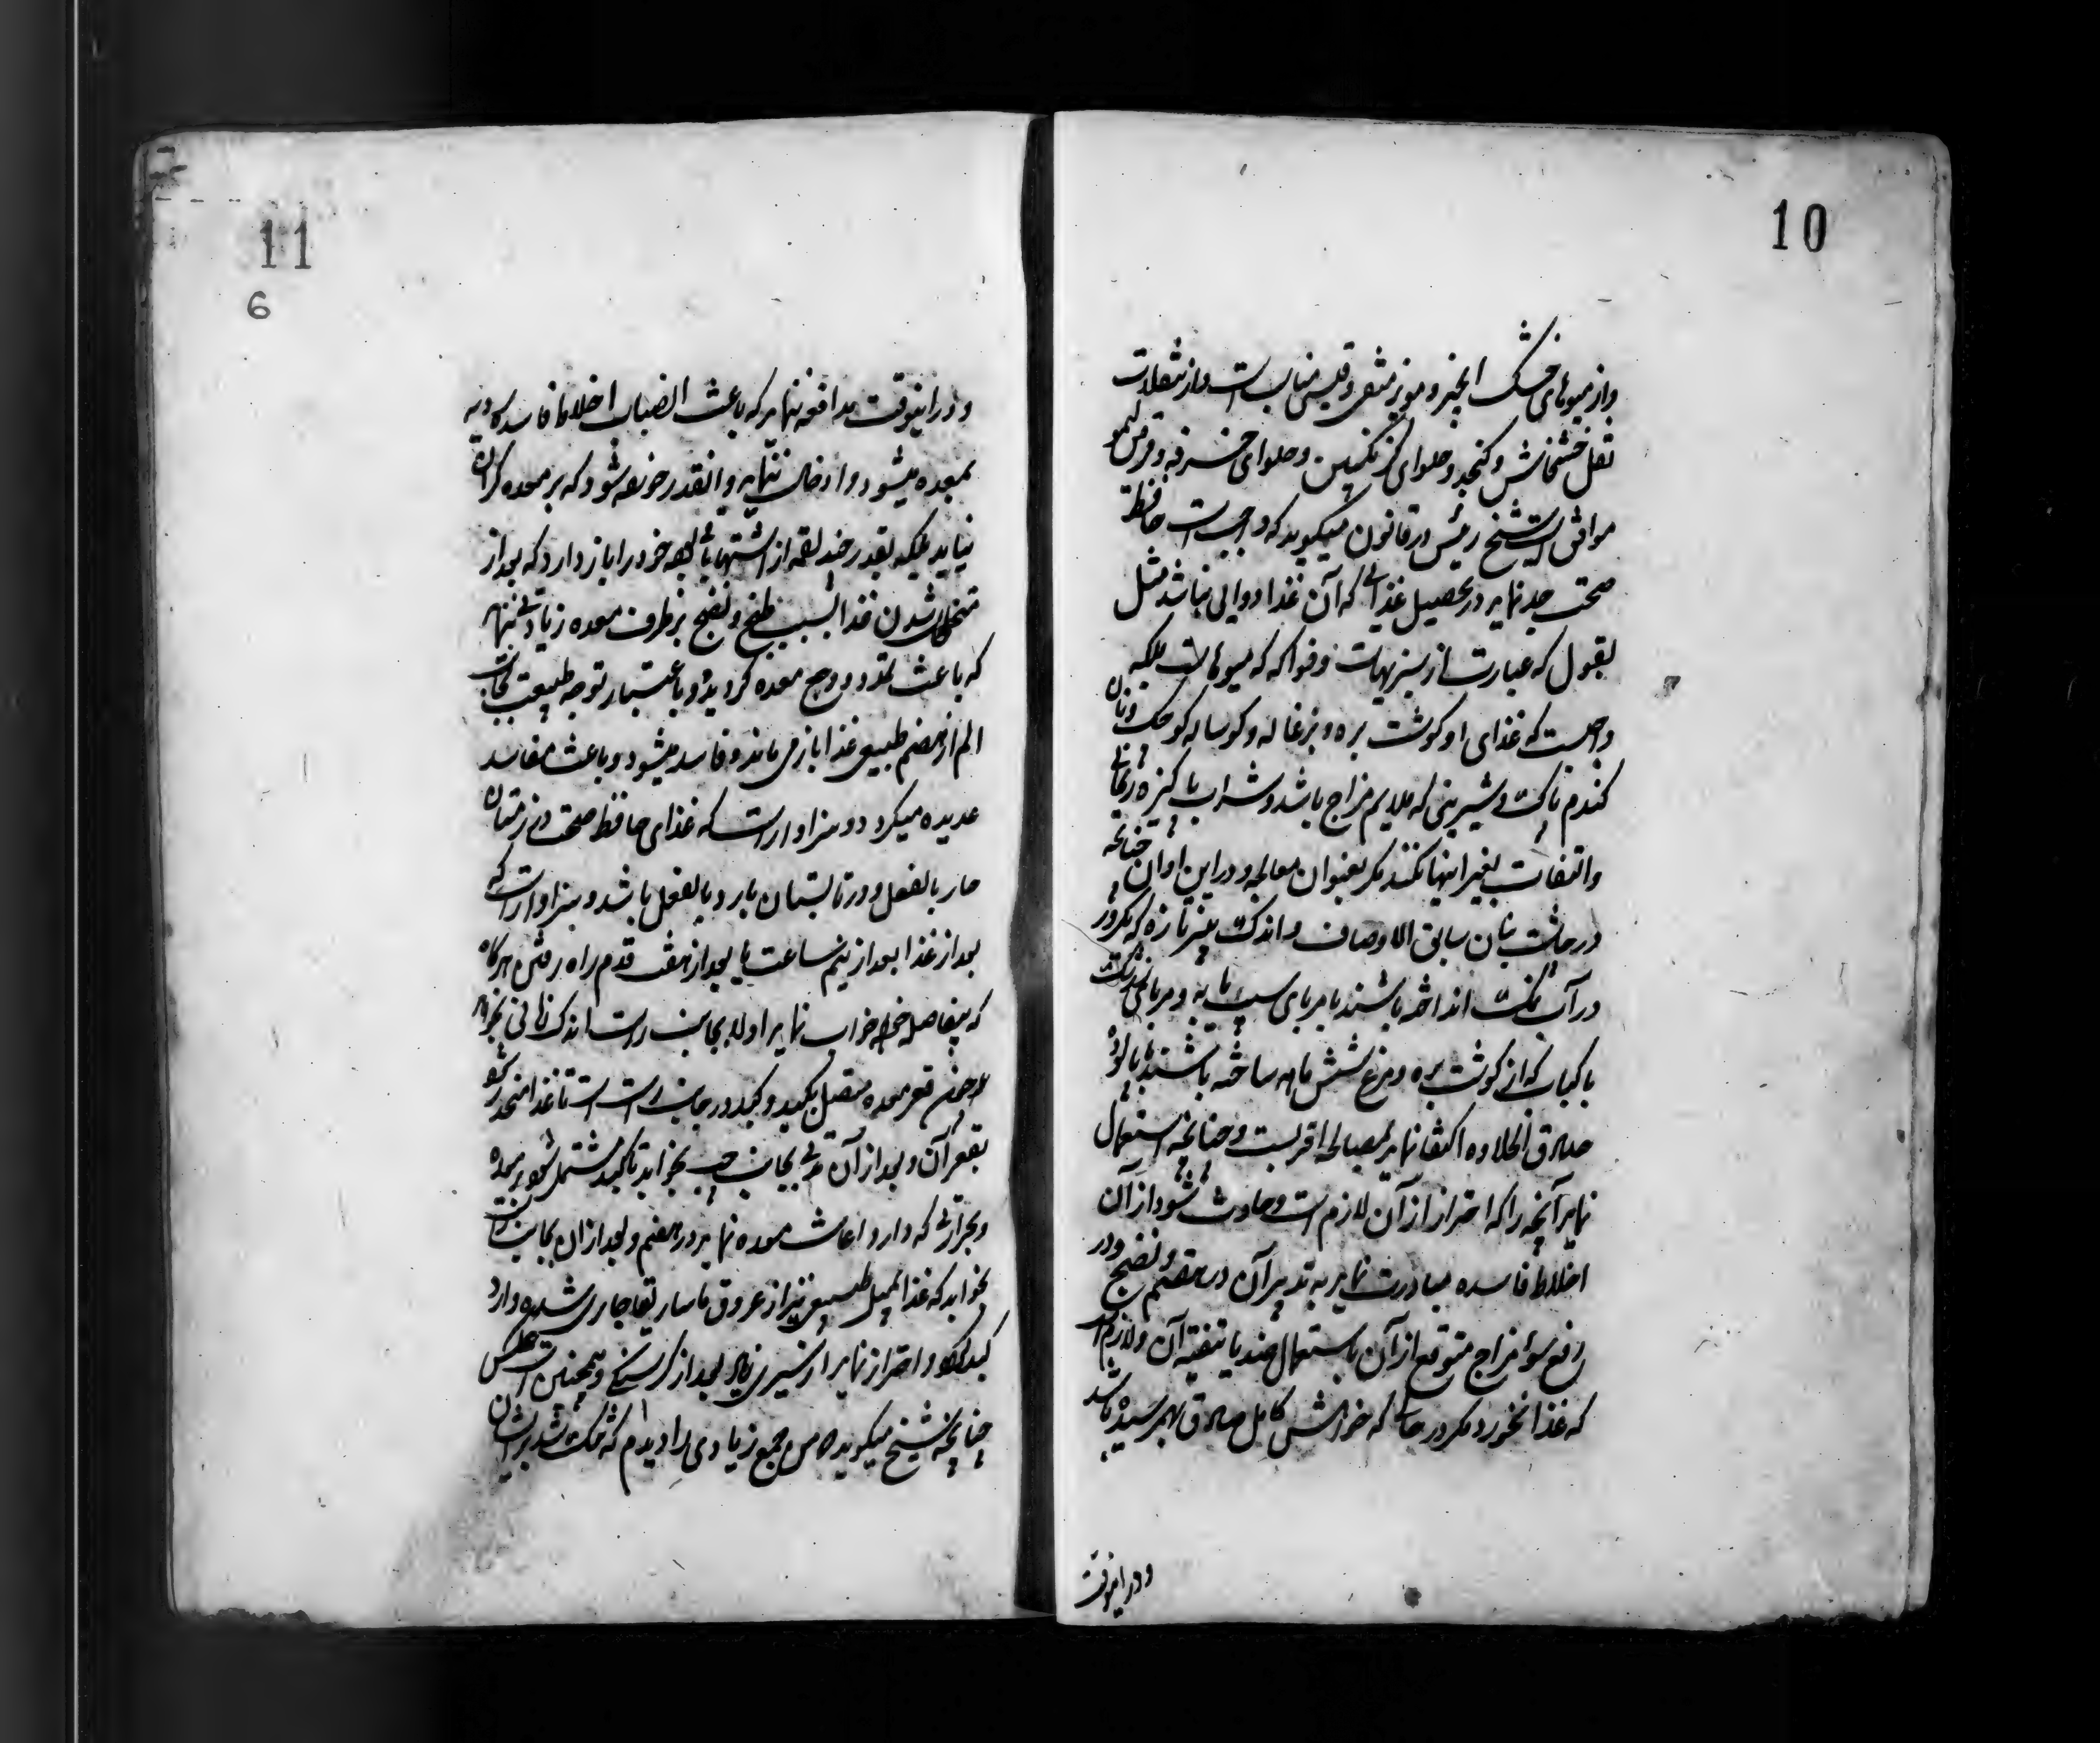 10
واز میوهای خشک انجیر و مویز منقی و قیسی مناسبست و از تنقلات
نقل خشخاش و کنجد و حلوای کزنکبین و حلوای خرفه و قرص لیمو
موافق است شیخ رئیس در قانون میکوید که واجبست حافظ
صحت جد نماید در تحصیل غذائی که آن غذا دوایی نباشد مثل
بقول که عبارت از سبزیهاست و فواکه که میوهاست بلکه
واجبست که غذای او کوشت بره و بزغاله و کوساله کوچک و نان
کندم پاک و شیرینی که ملایم مزاج باشد و شراب پاکیزه ریحانی
و التفات بغیر اینها نکند مکر بعنوان معالجه و در این اوان چنانچه
در چاشت بنان سابق الاوصاف و اندک پنیر تازه که مکرور
در آب نمک انداخته باشند با مربای سیب یا به و مربای
با کباب که از کوشت بره و مرغ شش ماهه ساخته باشند یا پالوده
صادق الحلاوه اکتفا نماید بمصالحه اقربست و چنانچه استعمال
نماید آنچه را که احتراز از آن لازم است و حادث شود از آن
اخلاط فاسده مبادرت نماید به تدبیر آن در هضم و نضج و در
رفع سوء مزاج متوقع از آن باستعمال ضد یا تنقیه آن و لازم است
که غذا نخورد مکر در حالتی که خواهش کامل صادق بهم رسیده باشد
و در اینوقت
11
6
و در اینوقت مدافعه ننماید که باعث انصباب اخلاط فاسده ردیه
بمعده میشود و ادخال ننماید و انقدر خورده شود که بر معده کران
نیاید بلکه بقدر چند لقمه از اشتهای خود را باز دارد که بعد از
متخلخل شدن غذا بسبب طبخ و نضج بر ظرف معده زیادتی ننماید
که باعث تمدد و وجع معده کردیده و باعتبار توجه طبیعت بجانب
الم از هضم طبیعی غذا باز می ماند و فاسد میشود و باعث مفاسد
عدیده میکردد و سزاوار است که غذای حافظ صحت در زمستان
حار بالفعل و در تابستان بارد بالفعل باشد و سزاوار است که
بعد از غذا بعد از نیم ساعت یا بعد از هفت قدم راه رفتن هرکاه
که بیفاصله خواهد خواب نماید اولا بجانب راست اندک زمانی بخوابد
چون قعر معده متصل بکبد و کبد در جانب راست است تا غذا منحدر شود
بقعر آن و بعد از آن مدتی بجانب چپ بخوابد تا کبد مشتمل شود بر معده
و بحرارتی که دارد اعانت معده نماید در هضم و بعد از ان بجانب راست
بخوابد که غذا بمیل طبیعی نیز از عروق ماساریقا جاری شده وارد
کبد و احتراز نماید از سیری زیاد بعد از کرسنکی و همچنین است عکس
چنانچه شیخ میکوید من جمع زیادی را دیدم که تنک شد بر ایشان